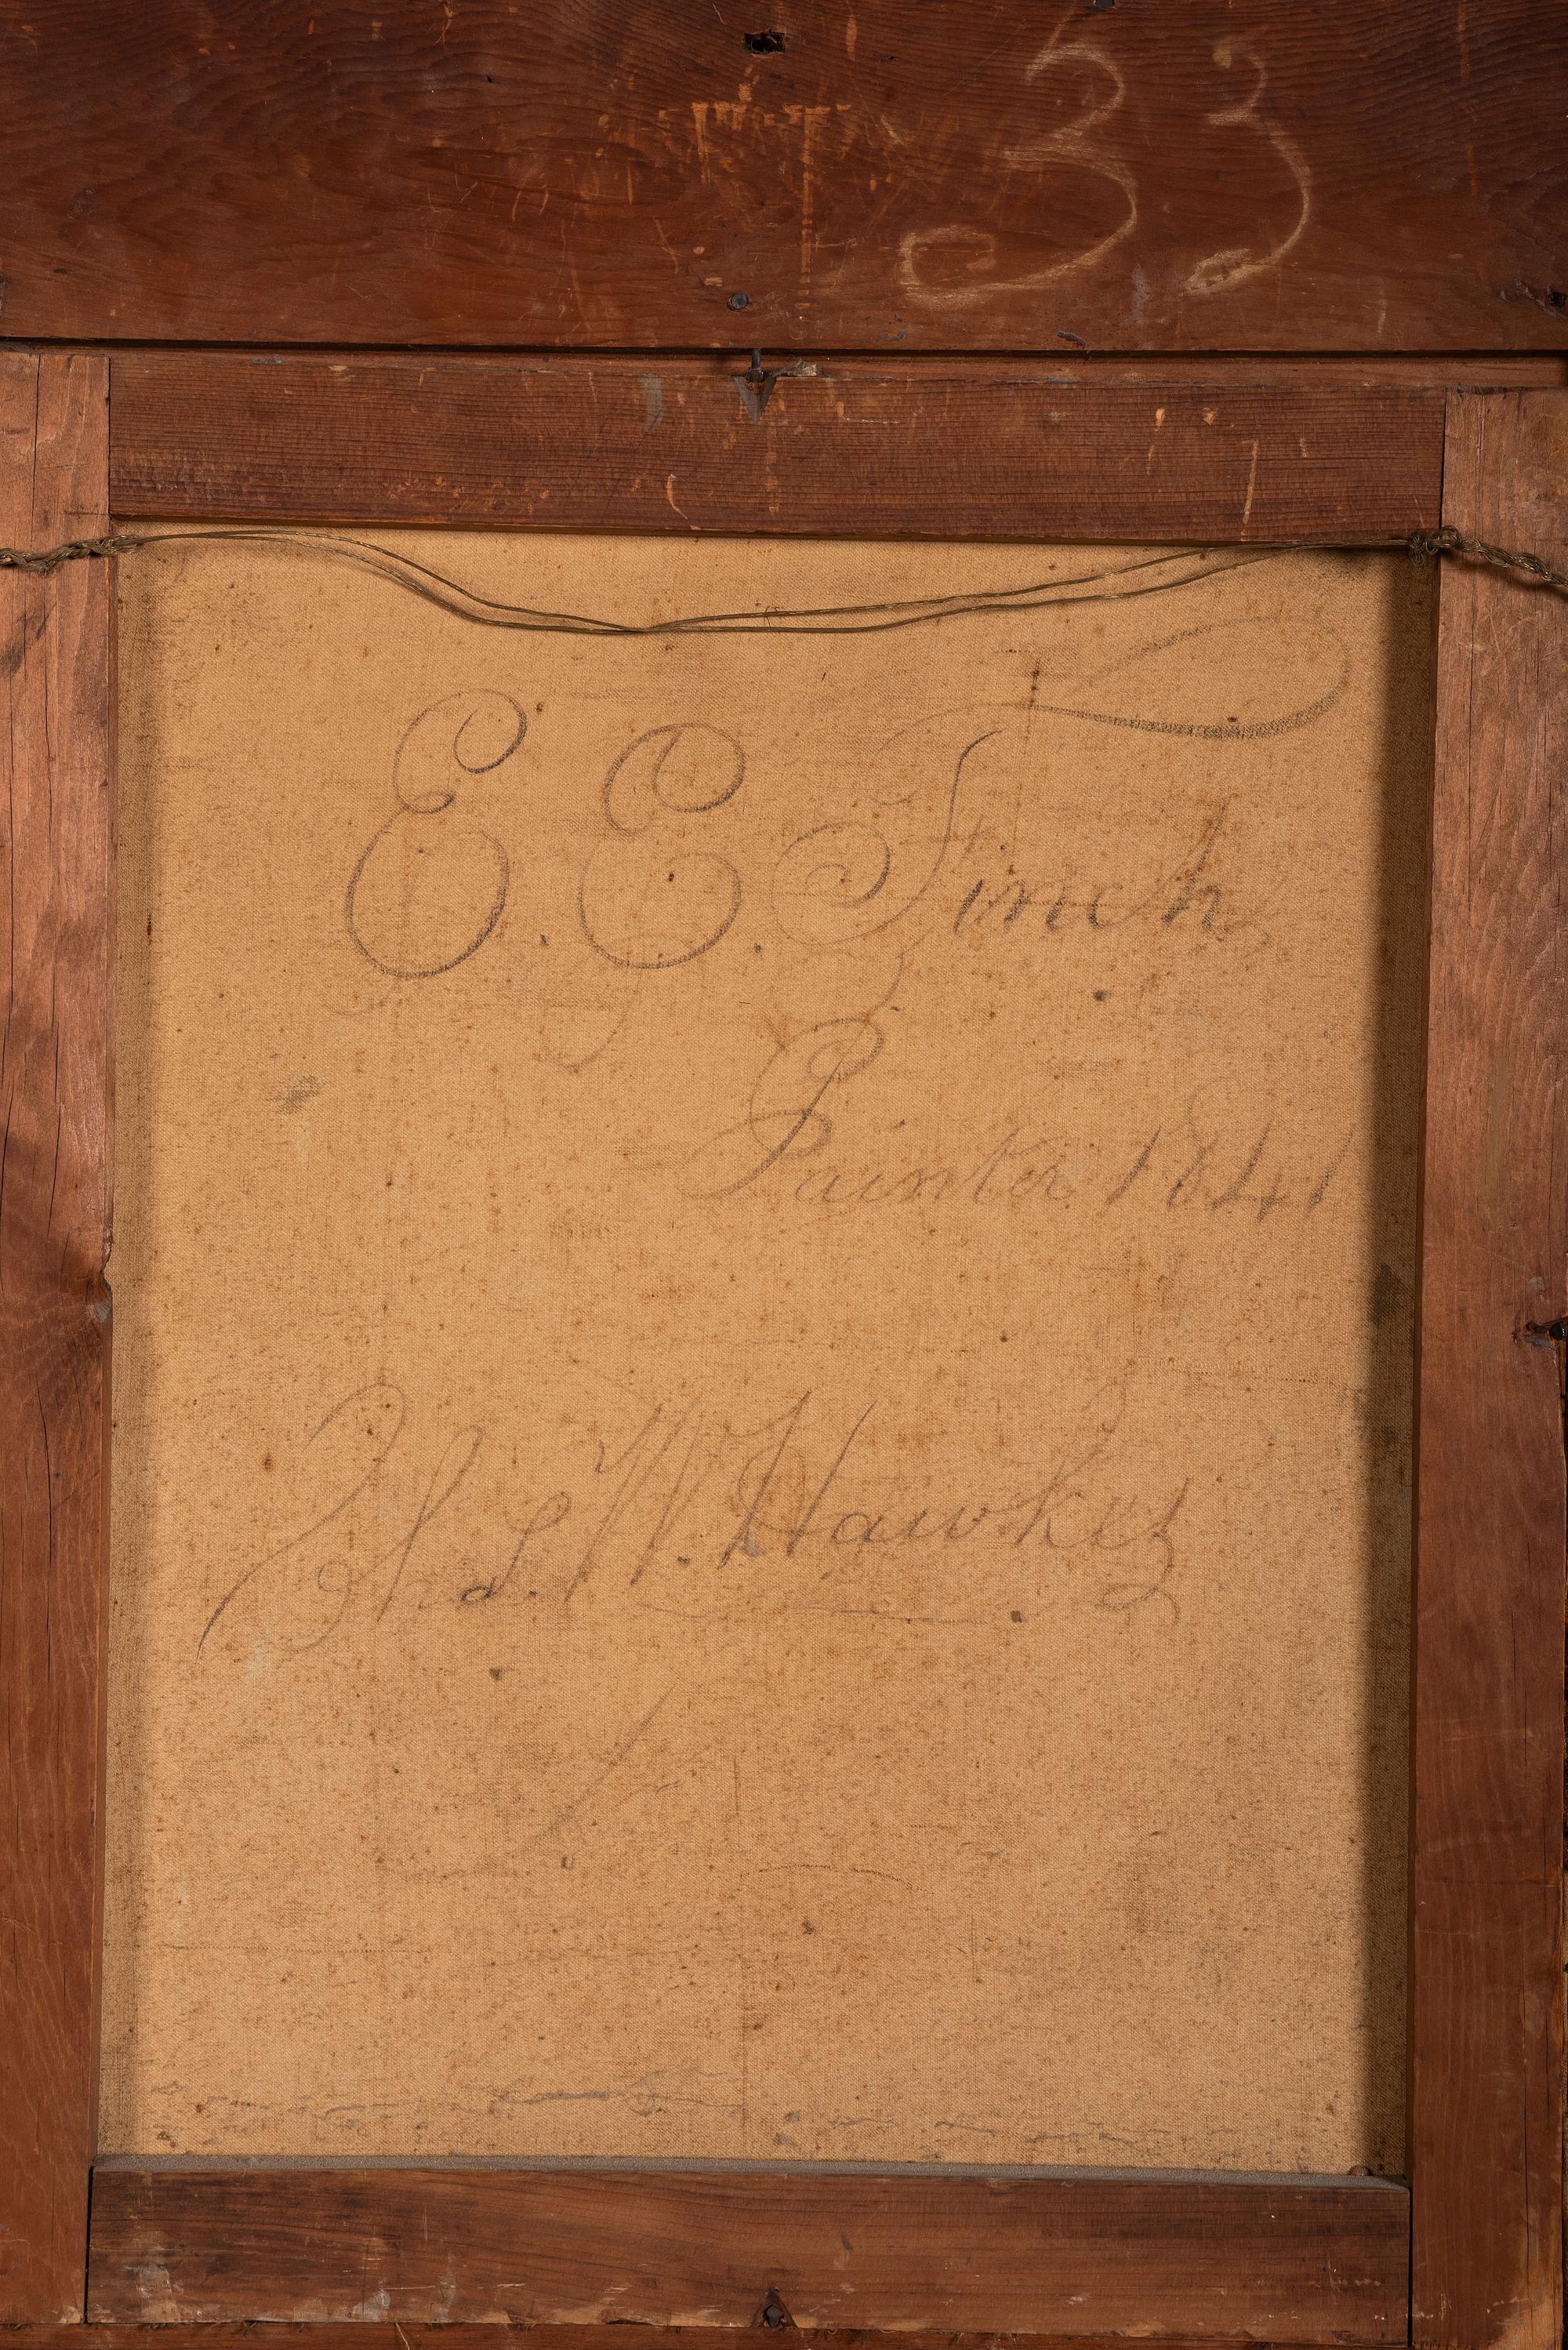 33
E. E. Finch
Painter 1841
Chas. W. Hawkes